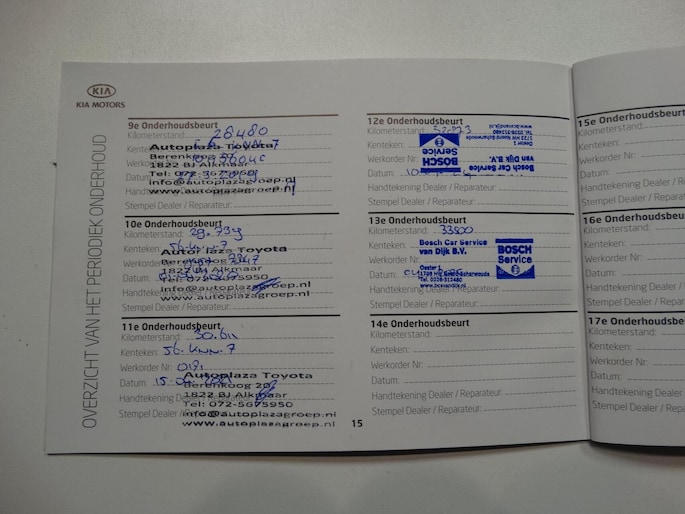 KIA
KIA MOTORS
OVERZICHT VAN HET PERIODIEK ONDERHOUD
9e Onderhoudsbeurt
Kilometerstand: 28480
Kenteken:
Autoplaza Toyota
Werkorder Nr:
Berenkoog
1822 BJ Alkmaar
Datum:
Tel: 072-5675950
Handtekening
info@autoplazagroep.nl
www.autoplazagroep.nl
Stempel Dealer / Reparateur:
10e Onderhoudsbeurt
Kilometerstand: 29.739
Kenteken: 56-KNN-7
Autoplaza Toyota
Werkorder Nr:
Berenkoog
1822 BJ Alkmaar
Datum:
Tel: 072-5675950
Handtekening
info@autoplazagroep.nl
Stempel Dealer
www.autoplazagroep.nl
11e Onderhoudsbeurt
Kilometerstand: 30.611
Kenteken: 56-KNN-7
Werkorder Nr:
Autoplaza Toyota
Datum: 15-04
Berenkoog 20
1822 BJ Alkmaar
Handtekening
Tel: 072-5675950
Stempel Dealer
info@autoplazagroep.nl
www.autoplazagroep.nl
15
12e Onderhoudsbeurt
Kilometerstand:
Kenteken:
Werkorder Nr:
Datum:
BOSCH
Service
Bosch Car Service
van Dijk B.V.
Oester 1
1722 HW Noord Scharwoude
Tel. 0226-313480
www.bcsvandijk.nl
Handtekening Dealer / Reparateur:
Stempel Dealer / Reparateur:
13e Onderhoudsbeurt
Kilometerstand: 33500
Kenteken:
Bosch Car Service
van Dijk B.V.
BOSCH
Service
Werkorder Nr:
Oester 1
Datum:
Tel. 0226-313480
www.bcsvandijk.nl
Handtekening
Stempel Dealer / Reparateur:
14e Onderhoudsbeurt
Kilometerstand:
Kenteken:
Werkorder Nr:
Datum:
Handtekening Dealer / Reparateur:
Stempel Dealer / Reparateur:
15e Onderhoudsbe
Kilometerstand:
Kenteken:
Werkorder Nr:
Datum:
Handtekening Deal
Stempel Dealer / R
16e Onderhoudsbe
Kilometerstand:
Kenteken:
Werkorder Nr:
Datum:
Handtekening Dealer
Stempel Dealer / Re
17e Onderhoudsbe
Kilometerstand:
Kenteken:
Werkorder Nr:
Datum:
Handtekening Dealer
Stempel Dealer / Repar